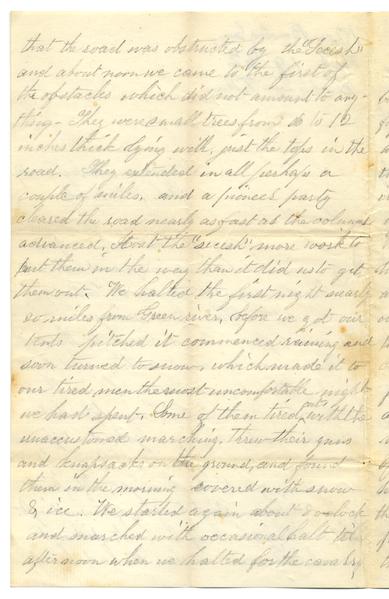 that the road was obstructed by the "Secish"
and about noon we came to the first of
the obstacles which did not amount to any-
thing - They were small trees from 6 to 12
inches thick dying with, just the tops in the
road. They extended in all perhaps a
couple of miles, and a pioneer party
cleared the road nearly as fast as the column
advanced, the "secish" more work to
put them in the way than it did us to get
them out. We halted the first night nearly
20 miles from Green river, before we got our
tents pitched it commenced raining and
soon turned to snow, which made it to
our tired men the most uncomfortable night
we had spent. Some of them tired out with the
unaccustomed marching, threw their guns
and knapsacks on the ground, and found
them in the morning covered with snow
& ice. We started again about 8 oclock
and marched with occasional halt till
afternoon when we halted for the cavalry